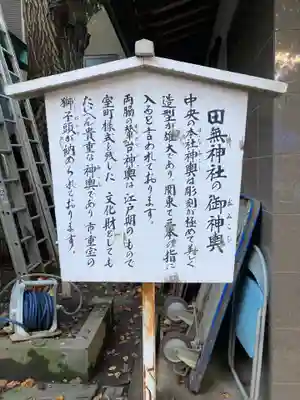 田無神社の御神輿
おみこし
中央の本社神輿は彫刻が極めて美しく
造型が雄大であり、関東で三本の指に
入ると言われております。
両脇の鳳台神輿は江戸期のもので
室町様式を残した文化財としても
たいへん貴重な神輿であり市重宝の
獅子頭が納められております。